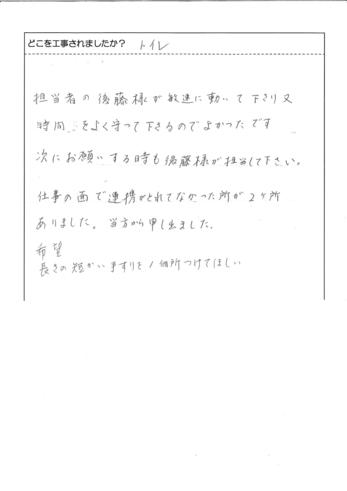 どこを工事されましたか? トイレ
担当者の後藤様が敏速に動いて下さり又
時間をよく守って下さるのでよかったです
次にお願いする時も後藤様が担当して下さい。
仕事の面で連携がとれてなかった所が2ヶ所
ありました。当方から申し出ました。
希望
長さの短かい手すりを1個所つけてほしい